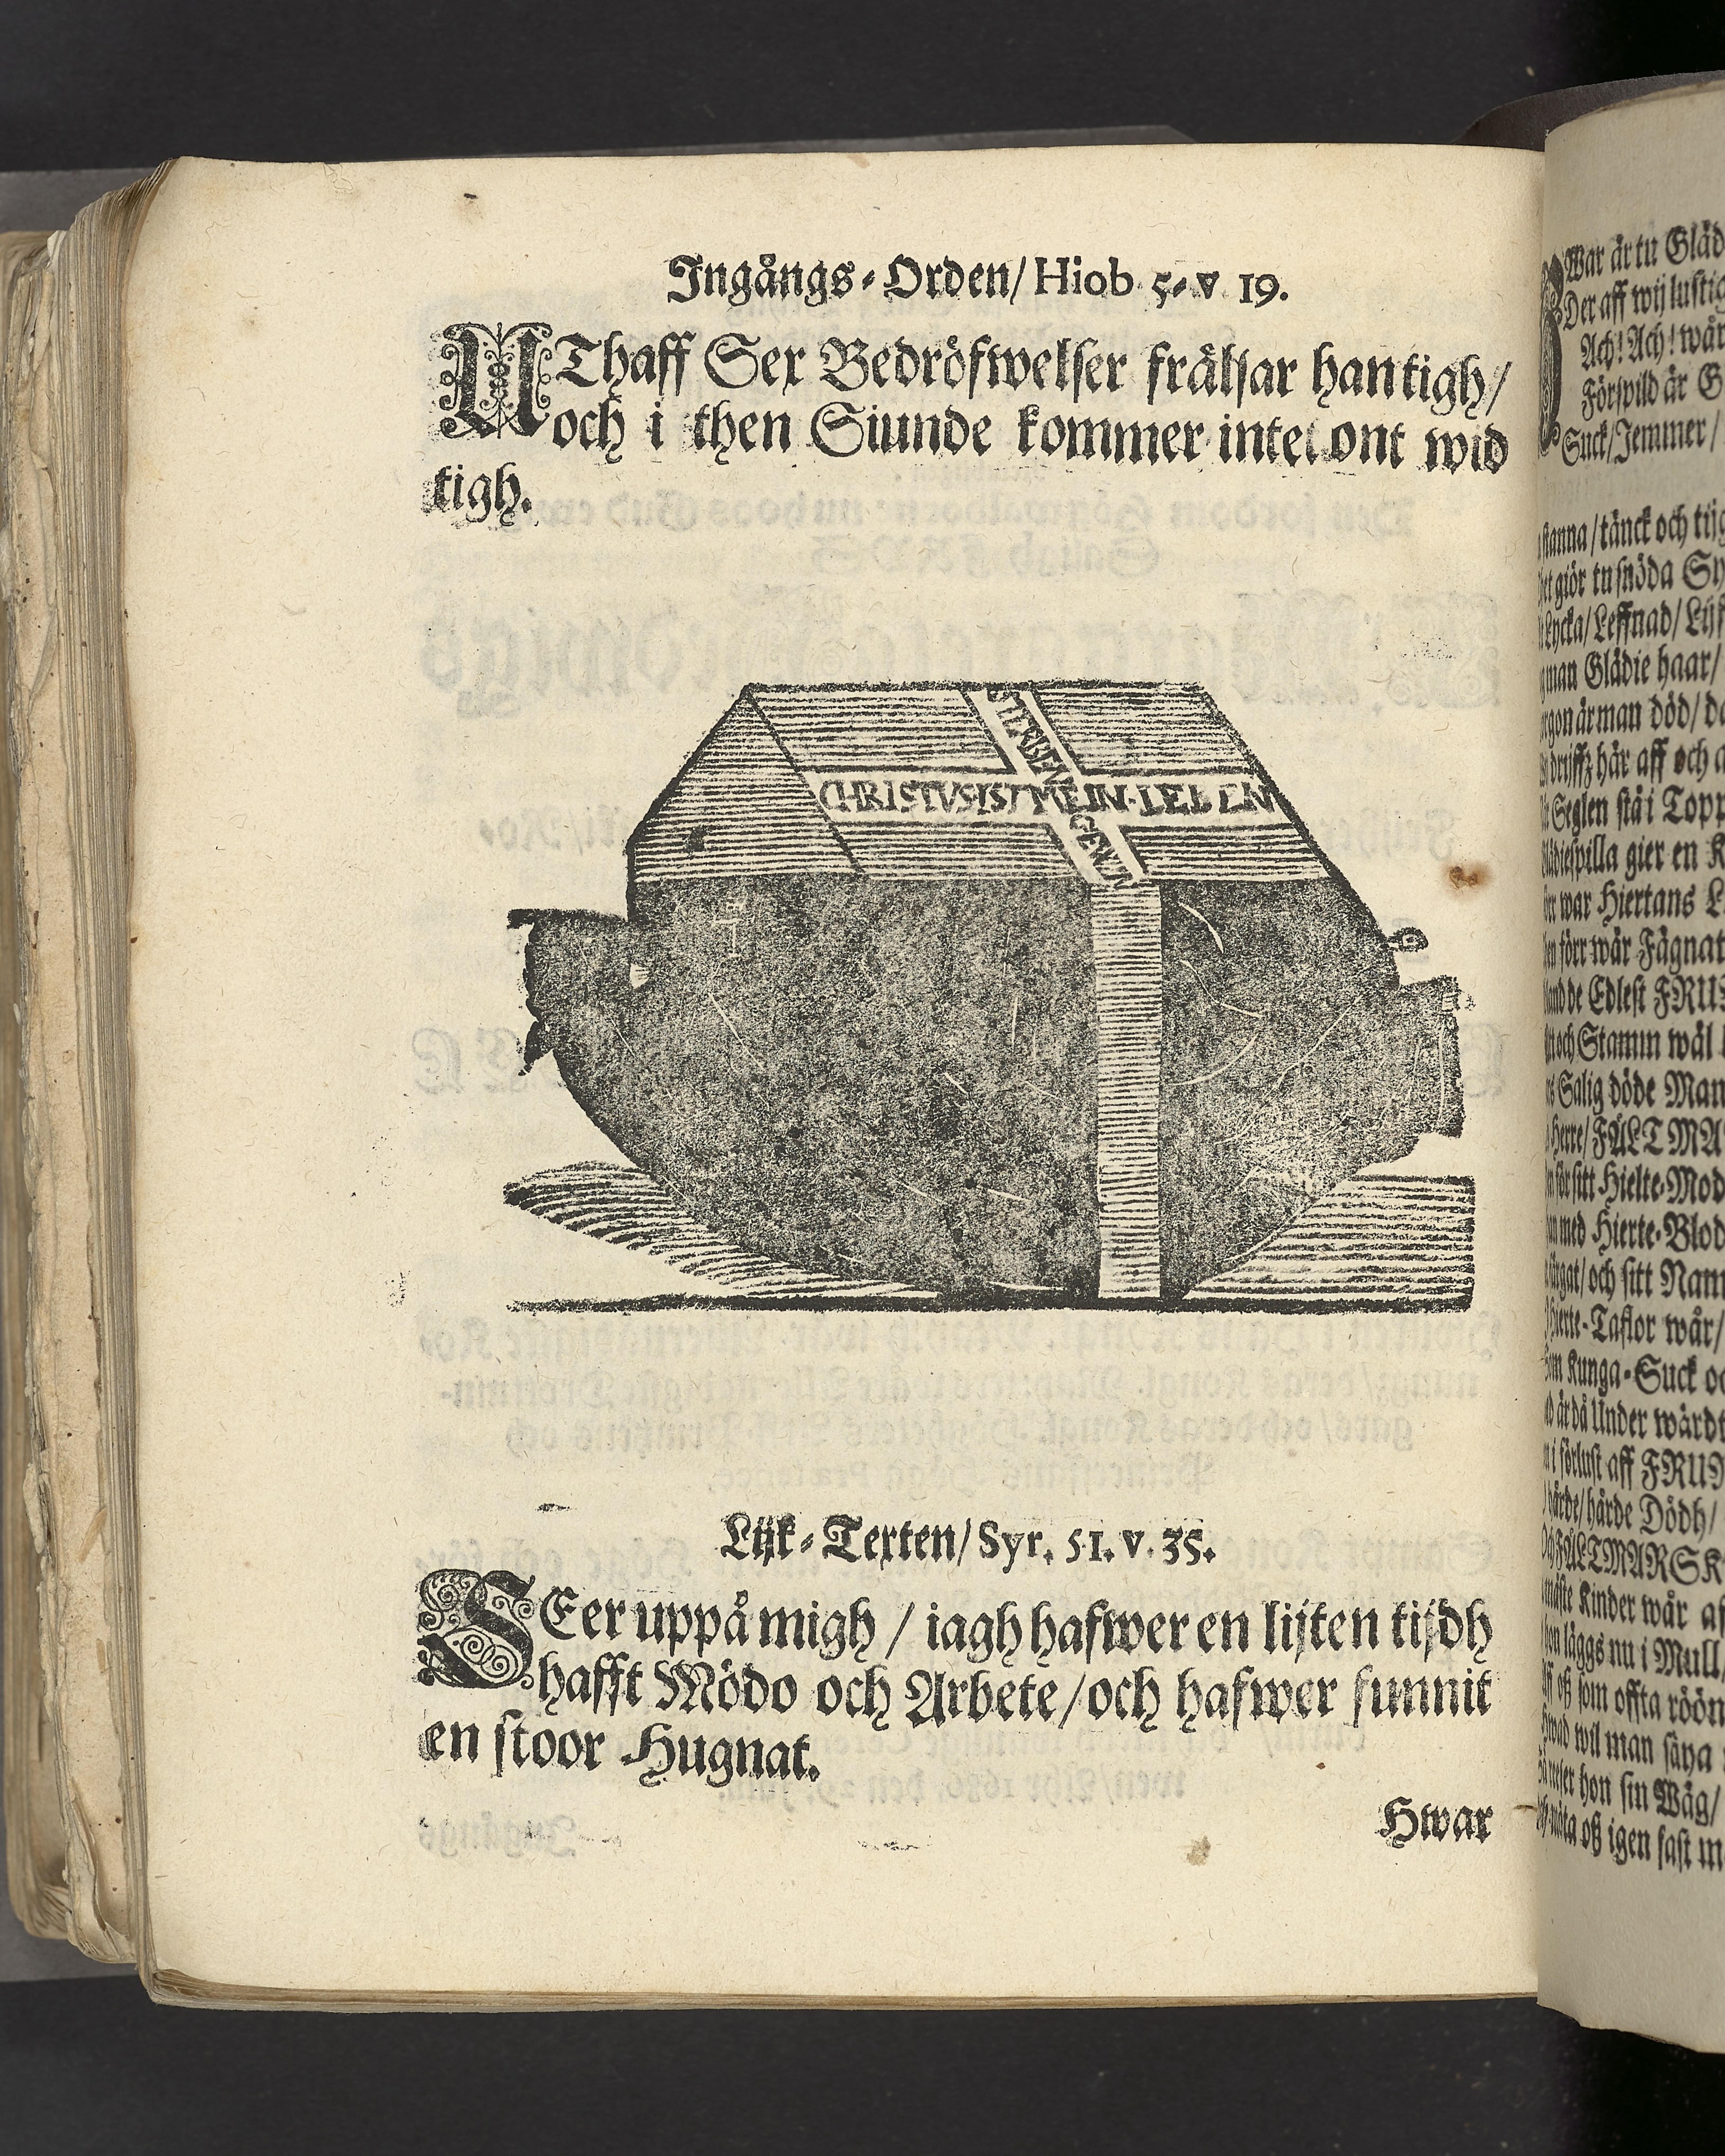 Ingångs-Orden/ Hiob 5. v 19.
UThaff Sex Bedröfwelser frälsar han tigh/
och i then Siunde kommer intet ont wid
tigh.
STERBEN
CHRISTUS IST MEIN LEBEN
GEWIN
Lijk-Texten/ Syr. 51. v. 35.
SEer uppå migh / iagh hafwer en lijten tijdh
hafft Mödo och Arbete/ och hafwer funnit
en stoor Hugnat.
Hwar
War är tu Gläd
Der aff wij lustig
Ach! Ach! wår
Förspild är G
Suck/ Jemmer/
stanna/ tänck och tijg
giör tu snöda Sy
Lycka/ Leffnad/ Lijf
man Glädie haar/
är man död/ da
här aff och a
Seglen stå i Topp
gier en K
war Hiertans L
förr wår Fägnat
de Edlest FRUS
och Stamm wäl
Salig döde Man
Herre/ FÄLTMA
sitt Hielte-Mod
med Hierte-Blod
och sitt Nam
Taflor wår/
Kunga-Suck oc
är då Under wärdt
i förlust aff FRUN
hårde Dödh/
FÄLTMARSK
Kinder wår af
läggs nu i Mull/
oß som offta röön
wil man säya
hon sin Wäg/
oß igen fast m